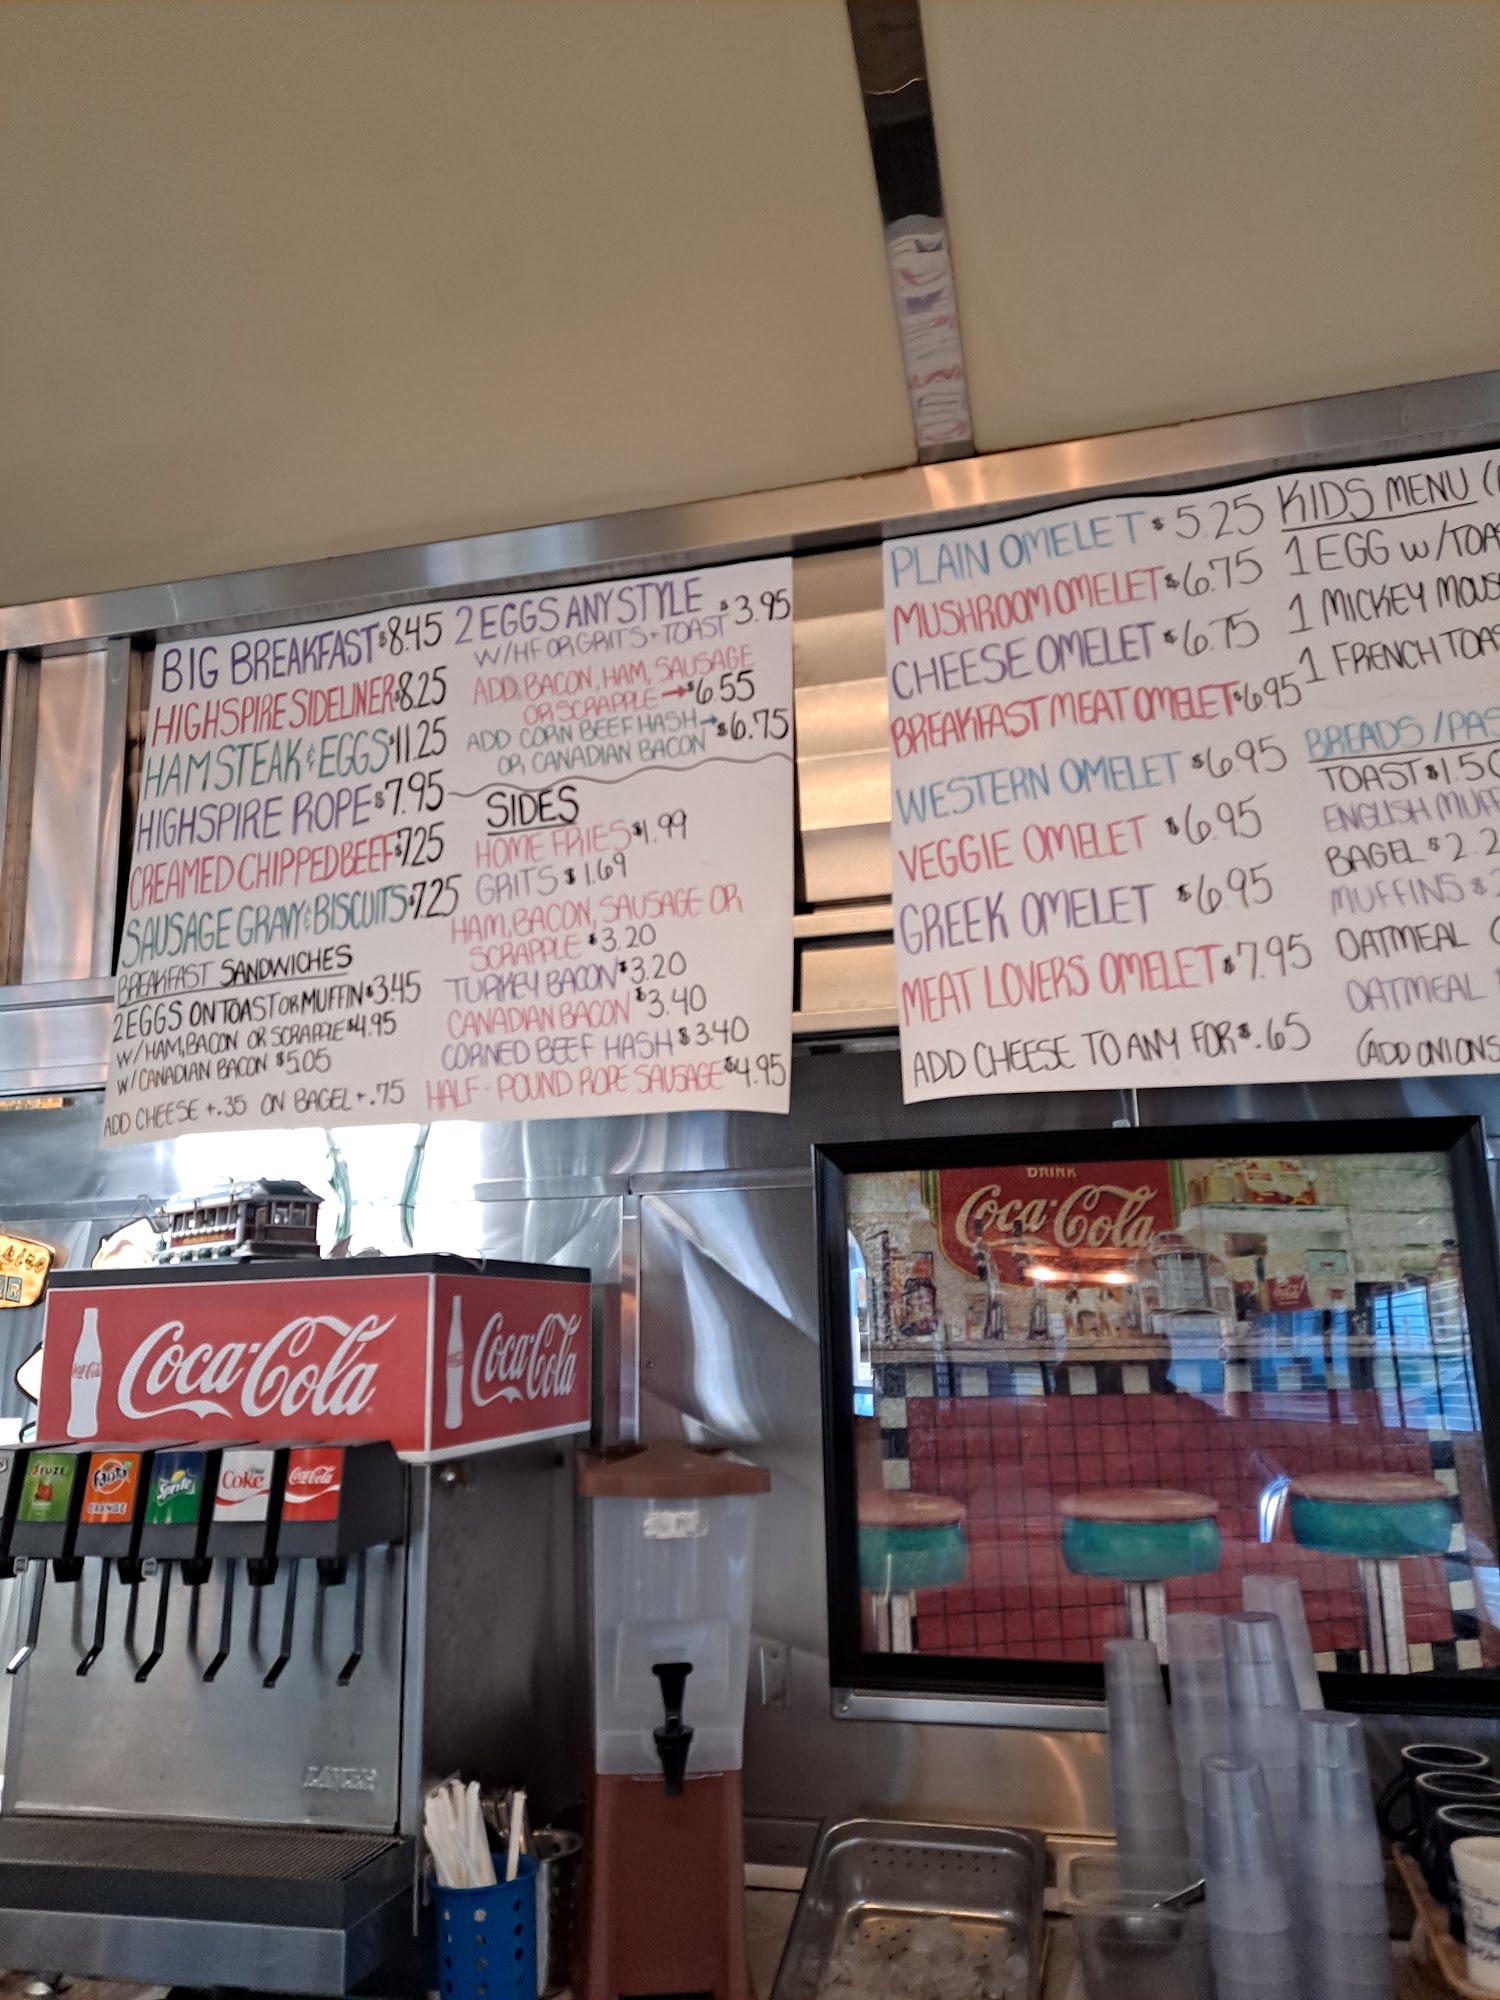 BIG BREAKFAST $8.45
HIGHSPIRE SIDELINER $8.25
HAM STEAK & EGGS $11.25
HIGHSPIRE ROPE $7.95
CREAMED CHIPPED BEEF $7.25
SAUSAGE GRAVY & BISCUITS $7.25
BREAKFAST SANDWICHES
2 EGGS ON TOAST OR MUFFIN $3.45
W/HAM, BACON OR SCRAPPLE $4.95
W/CANADIAN BACON $5.05
ADD CHEESE +.35 ON BAGEL +.75
2 EGGS ANY STYLE $3.95
W/HF OR GRITS + TOAST
ADD, BACON, HAM, SAUSAGE
OR SCRAPPLE → $6.55
ADD CORN BEEF HASH → $6.75
OR CANADIAN BACON
SIDES
HOME FRIES $1.99
GRITS $1.69
HAM, BACON, SAUSAGE OR
SCRAPPLE $3.20
TURKEY BACON $3.20
CANADIAN BACON $3.40
CORNED BEEF HASH $3.40
HALF-POUND ROPE SAUSAGE $4.95
PLAIN OMELET $5.25
MUSHROOM OMELET $6.75
CHEESE OMELET $6.75
BREAKFAST MEAT OMELET $6.95
WESTERN OMELET $6.95
VEGGIE OMELET $6.95
GREEK OMELET $6.95
MEAT LOVERS OMELET $7.95
ADD CHEESE TO ANY FOR $.65
KIDS MENU (
1 EGG W/TOA
1 MICKEY MOUS
1 FRENCH TOA
BREADS/PAS
TOAST $1.50
ENGLISH MUFF
BAGEL $2.2
MUFFINS $
OATMEAL
OATMEAL
(ADD ONIONS
DRINK
Coca-Cola
Coca-Cola
Coca-Cola
FUZE
Fanta
ORANGE
Sprite
Diet
Coke
Coca-Cola
LANCER